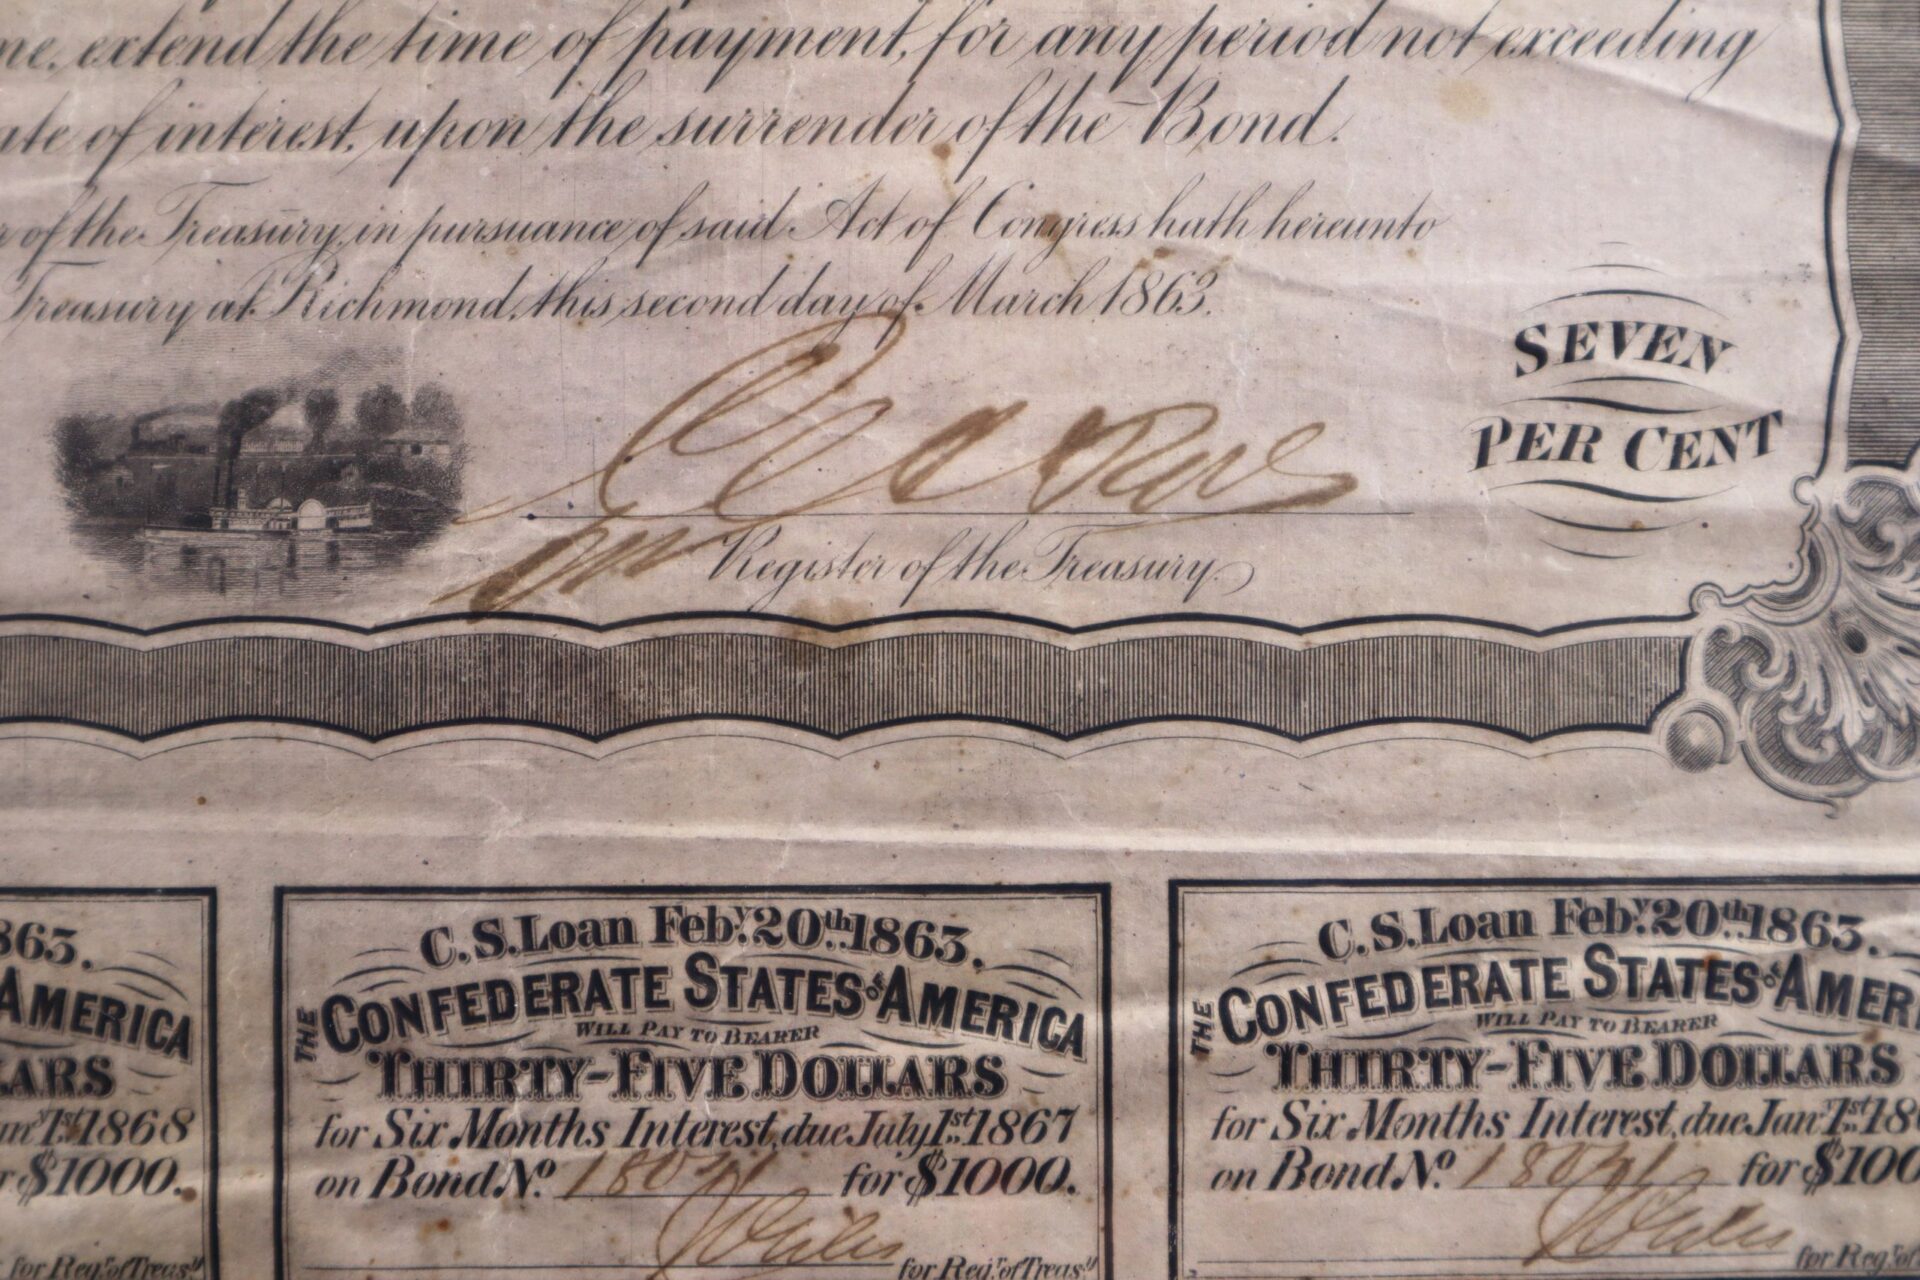 extend the time of payment, for any period not exceeding
of interest, upon the surrender of the Bond.
of the Treasury, in pursuance of said Act of Congress hath hereunto
Treasury at Richmond, this second day of March 1863.
SEVEN
PER CENT
Register of the Treasury.
863.
AMERICA
1st 1868
$1000.
for Regr. of Treasy
C. S. Loan Feby. 20th. 1863.
THE CONFEDERATE STATES OF AMERICA
WILL PAY TO BEARER
THIRTY-FIVE DOLLARS
for Six Months Interest, due July 1st. 1867
on Bond No. for $1000.
for Regr. of Treasy
C. S. Loan Feby. 20th. 1863.
THE CONFEDERATE STATES OF AMER
WILL PAY TO BEARER
THIRTY-FIVE DOLLARS
for Six Months Interest, due Jany. 1st. 18
on Bond No. for $100
for Regr. of